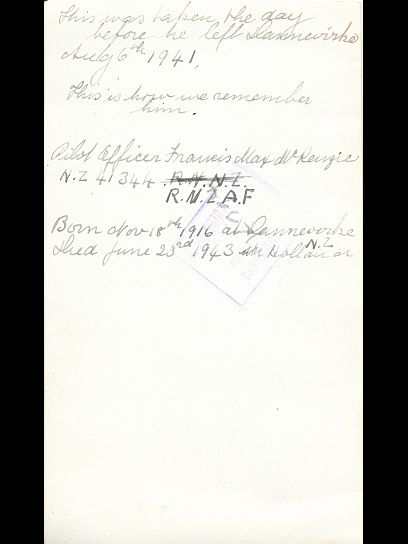 This was taken the day
before he left Dannevirke
Aug 6th 1941.
This is how we remember
him.
Pilot Officer Francis Max McKenzie
N.Z 41344 R.N.N.Z.
R.N.Z.A.F
Born Nov 18th 1916 at Dannevirke
N.Z
Died June 23rd 1943 in Holland